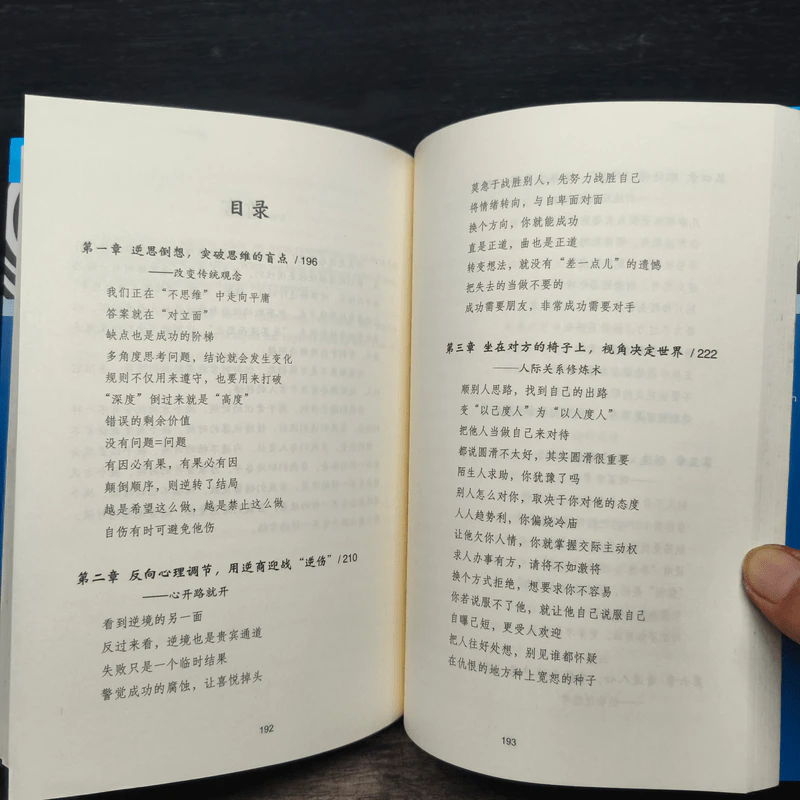 目录
第一章 逆思倒想，突破思维的盲点 /196
——改变传统观念
我们正在“不思维”中走向平庸
答案就在“对立面”
缺点也是成功的阶梯
多角度思考问题，结论就会发生变化
规则不仅用来遵守，也要用来打破
“深度”倒过来就是“高度”
错误的剩余价值
没有问题=问题
有因必有果，有果必有因
颠倒顺序，则逆转了结局
越是希望这么做，越是禁止这么做
自伤有时可避免他伤
第二章 反向心理调节，用逆商迎战“逆伤” /210
——心开路就开
看到逆境的另一面
反过来看，逆境也是贵宾通道
失败只是一个临时结果
警觉成功的腐蚀，让喜悦掉头
192
莫急于战胜别人，先努力战胜自己
将情绪转向，与自卑面对面
换个方向，你就能成功
直是正道，曲也是正道
转变想法，就没有“差一点儿”的遗憾
把失去的当做不要的
成功需要朋友，非常成功需要对手
第三章 坐在对方的椅子上，视角决定世界 /222
——人际关系修炼术
顺别人思路，找到自己的出路
变“以己度人”为“以人度人”
把他人当做自己来对待
都说圆滑不太好，其实圆滑很重要
陌生人求助，你犹豫了吗
别人怎么对你，取决于你对他的态度
人人趋势利，你偏烧冷庙
让他欠你人情，你就掌握交际主动权
求人办事有方，请将不如激将
换个方式拒绝，想要求你不容易
你若说服不了他，就让他自己说服自己
自曝己短，更受人欢迎
把人往好处想，别见谁都怀疑
在仇恨的地方种上宽恕的种子
193